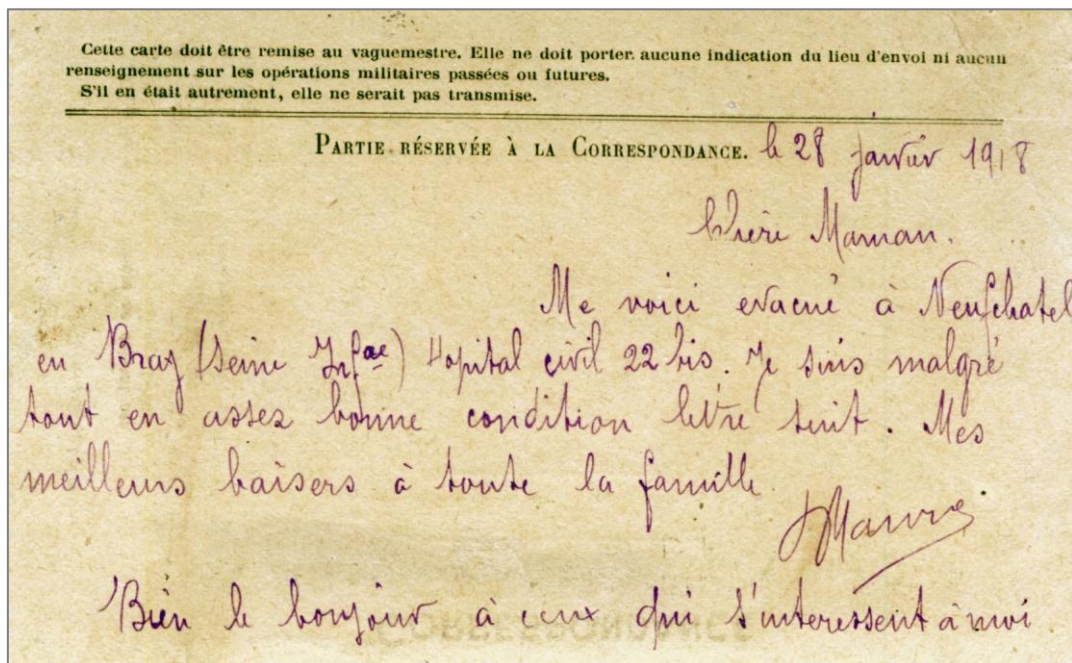 Cette carte doit être remise au vaguemestre. Elle ne doit porter aucune indication du lieu d'envoi ni aucun
renseignement sur les opérations militaires passées ou futures.
S'il en était autrement, elle ne serait pas transmise.
PARTIE RÉSERVÉE À LA CORRESPONDANCE. le 28 janvier 1918
Chère Maman.
Me voici evacué à Neufchatel
en Bray (Seine Infre) Hopital civil 22 bis. Je suis malgré
tout en assez bonne condition lettre suit. Mes
meilleurs baisers à toute la famille
Bien le bonjour à ceux qui s'interessent à moi